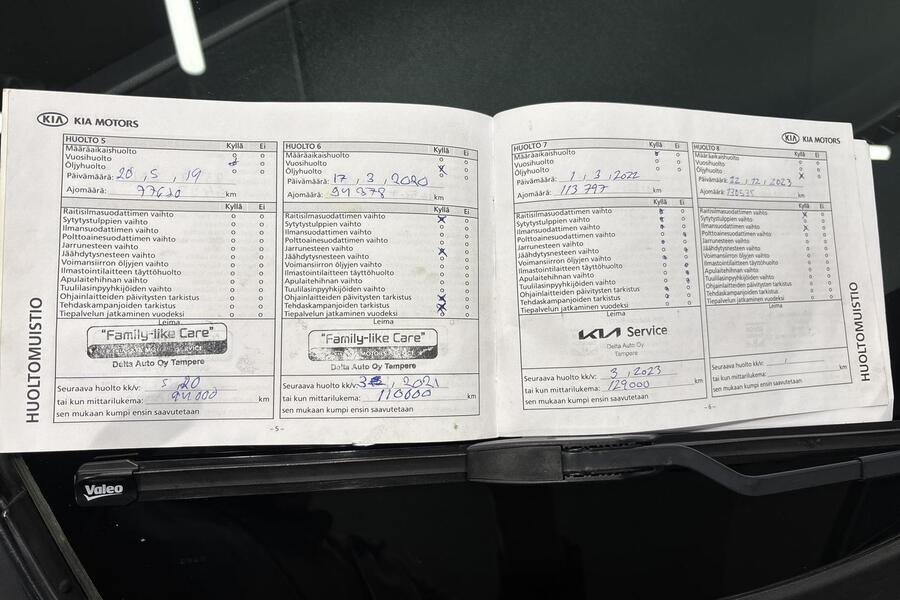 KIA KIA MOTORS
HUOLTO 5 Kyllä Ei
Määräaikaishuolto
Vuosihuolto
Öljyhuolto
Päivämäärä: 20, 5, 19
Ajomäärä: 77620 km
Kyllä Ei
Raitisilmasuodattimen vaihto
Sytytystulppien vaihto
Ilmansuodattimen vaihto
Polttoainesuodattimen vaihto
Jarrunesteen vaihto
Jäähdytysnesteen vaihto
Voimansiirron öljyjen vaihto
Ilmastointilaitteen täyttöhuolto
Apulaitehihnan vaihto
Tuulilasinpyyhkijöiden vaihto
Ohjainlaitteiden päivitysten tarkistus
Tehdaskampanjoiden tarkistus
Tiepalvelun jatkaminen vuodeksi
Leima
"Family-like Care"
KIA MOTORS SERVICE
Delta Auto Oy Tampere
Seuraava huolto kk/v: 5, 20
tai kun mittarilukema: 94000 km
sen mukaan kumpi ensin saavutetaan
HUOLTOMUISTIO
- 5 -
HUOLTO 6 Kyllä Ei
Määräaikaishuolto
Vuosihuolto
Öljyhuolto
Päivämäärä: 17, 3, 2020
Ajomäärä: 94378 km
Kyllä Ei
Raitisilmasuodattimen vaihto
Sytytystulppien vaihto
Ilmansuodattimen vaihto
Polttoainesuodattimen vaihto
Jarrunesteen vaihto
Jäähdytysnesteen vaihto
Voimansiirron öljyjen vaihto
Ilmastointilaitteen täyttöhuolto
Apulaitehihnan vaihto
Tuulilasinpyyhkijöiden vaihto
Ohjainlaitteiden päivitysten tarkistus
Tehdaskampanjoiden tarkistus
Tiepalvelun jatkaminen vuodeksi
Leima
"Family-like Care"
MOTORS SERVICE
Delta Auto Oy Tampere
Seuraava huolto kk/v: 3, 2021
tai kun mittarilukema: 110000 km
sen mukaan kumpi ensin saavutetaan
KIA KIA MOTORS
HUOLTO 7 Kyllä Ei
Määräaikaishuolto
Vuosihuolto
Öljyhuolto
Päivämäärä: 1, 3, 2022
Ajomäärä: 113 797 km
Kyllä Ei
Raitisilmasuodattimen vaihto
Sytytystulppien vaihto
Ilmansuodattimen vaihto
Polttoainesuodattimen vaihto
Jarrunesteen vaihto
Jäähdytysnesteen vaihto
Voimansiirron öljyjen vaihto
Ilmastointilaitteen täyttöhuolto
Apulaitehihnan vaihto
Tuulilasinpyyhkijöiden vaihto
Ohjainlaitteiden päivitysten tarkistus
Tehdaskampanjoiden tarkistus
Tiepalvelun jatkaminen vuodeksi
Leima
KIA Service
Delta Auto Oy
Tampere
Seuraava huolto kk/v: 3, 2023
tai kun mittarilukema: 129000 km
sen mukaan kumpi ensin saavutetaan
- 6 -
HUOLTO 8 Kyllä Ei
Määräaikaishuolto
Vuosihuolto
Öljyhuolto
Päivämäärä: 22, 12, 2023
Ajomäärä: 130535 km
Kyllä Ei
Raitisilmasuodattimen vaihto
Sytytystulppien vaihto
Ilmansuodattimen vaihto
Polttoainesuodattimen vaihto
Jarrunesteen vaihto
Jäähdytysnesteen vaihto
Voimansiirron öljyjen vaihto
Ilmastointilaitteen täyttöhuolto
Apulaitehihnan vaihto
Tuulilasinpyyhkijöiden vaihto
Ohjainlaitteiden päivitysten tarkistus
Tehdaskampanjoiden tarkistus
Tiepalvelun jatkaminen vuodeksi
Leima
Seuraava huolto kk/v: ,
tai kun mittarilukema: km
sen mukaan kumpi ensin saavutetaan
HUOLTOMUISTIO
Valeo